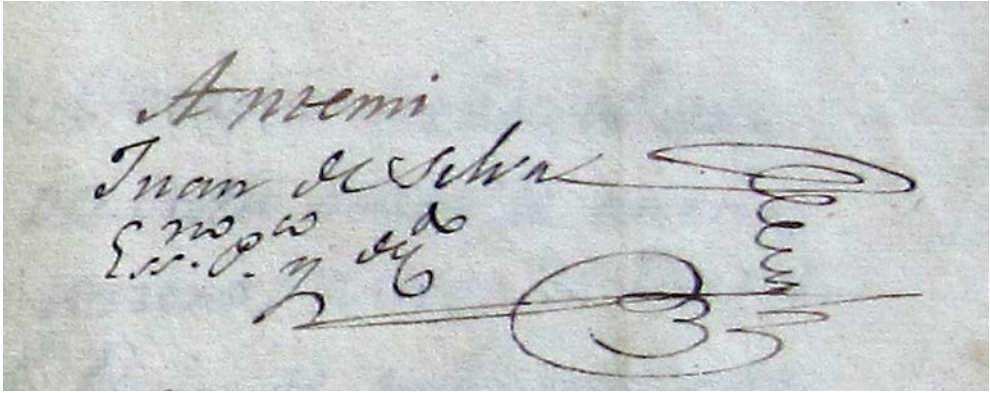 Antemi
Juan de Selva
Ess.no P.co y de C.do